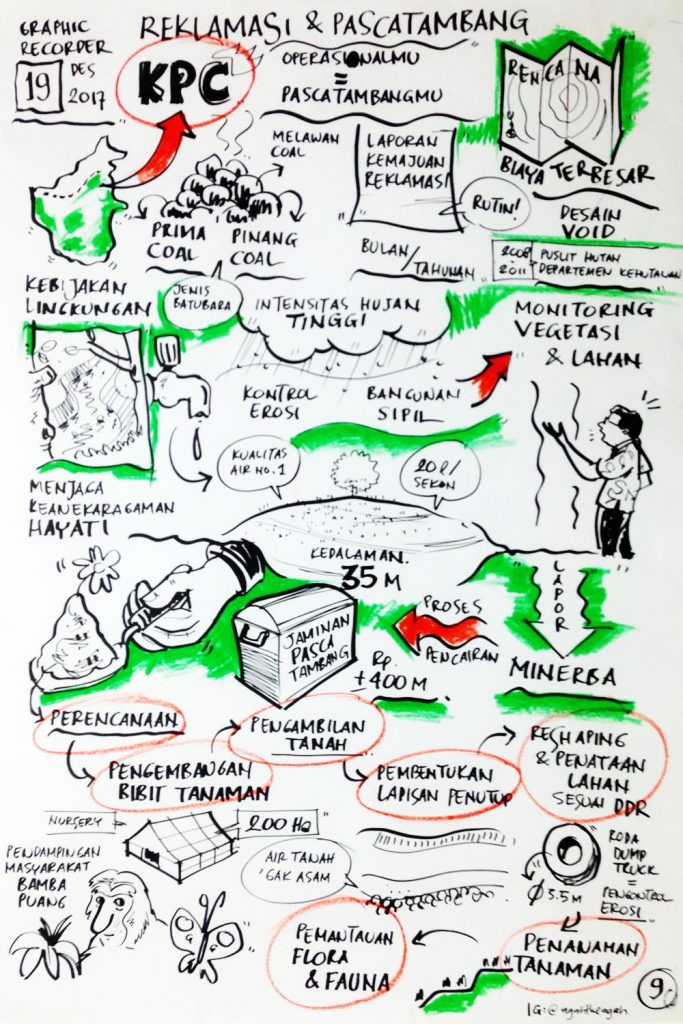 REKLAMASI & PASCATAMBANG
GRAPHIC
RECORDER
19
DES
2017
KPC
OPERASIONALMU
=
PASCATAMBANGMU
RENCANA
BIAYA TERBESAR
MELAWAN
COAL
LAPORAN
KEMAJUAN
REKLAMASI
RUTIN!
PRIMA
COAL
PINANG
COAL
BULAN/
TAHUNAN
DESAIN
VOID
2008
2011
PUSLIT HUTAN
DEPARTEMEN KEHUTANAN
KEBIJAKAN
LINGKUNGAN
JENIS
BATUBARA
INTENSITAS HUJAN
TINGGI
MONITORING
VEGETASI
& LAHAN
KONTROL
EROSI
BANGUNAN
SIPIL
KUALITAS
AIR NO.1
20 L/
SEKON
MENJAGA
KEANEKARAGAMAN
HAYATI
KEDALAMAN
35 M
LAPOR
MINERBA
PROSES
PENCAIRAN
JAMINAN
PASCA
TAMBANG
Rp.
±400 M
PERENCANAAN
PENGEMBANGAN
BIBIT TANAMAN
PENGAMBILAN
TANAH
PEMBENTUKAN
LAPISAN PENUTUP
RESHAPING
& PENATAAN
LAHAN
SESUAI DDR
NURSERY
200 Ha
PENDAMPINGAN
MASYARAKAT
BAMBA
PUANG
AIR TANAH
'GAK ASAM
RODA
DUMP
TRUCK
=
PENGONTROL
EROSI
Ø 3.5 M
PENANAMAN
TANAMAN
PEMANTAUAN
FLORA
& FAUNA
9